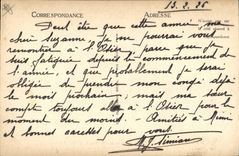 CORRESPONDANCE
ADRESSE
13. 2. 36
Peut être que cette année
chère Suzanne, je ne pourrai vous
rencontrer à l'Osier parce que je
suis fatiguée depuis le commencement de
l'année, et que probablement je serai
obligée de prendre mon congé déjà
le mois prochain; mais ma sœur
compte toujours aller à l'Osier pour le
moment du moins. - Amitiés à Mimi
et bonnes caresses pour vous.